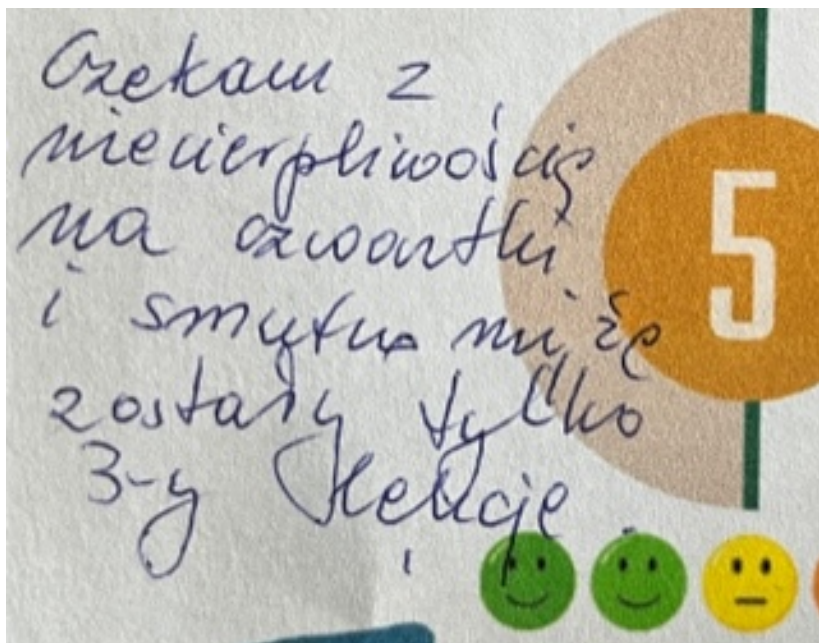 Czekam z
niecierpliwością
na czwartki
i smutno mi że
zostały tylko
3-y lekcje.
5